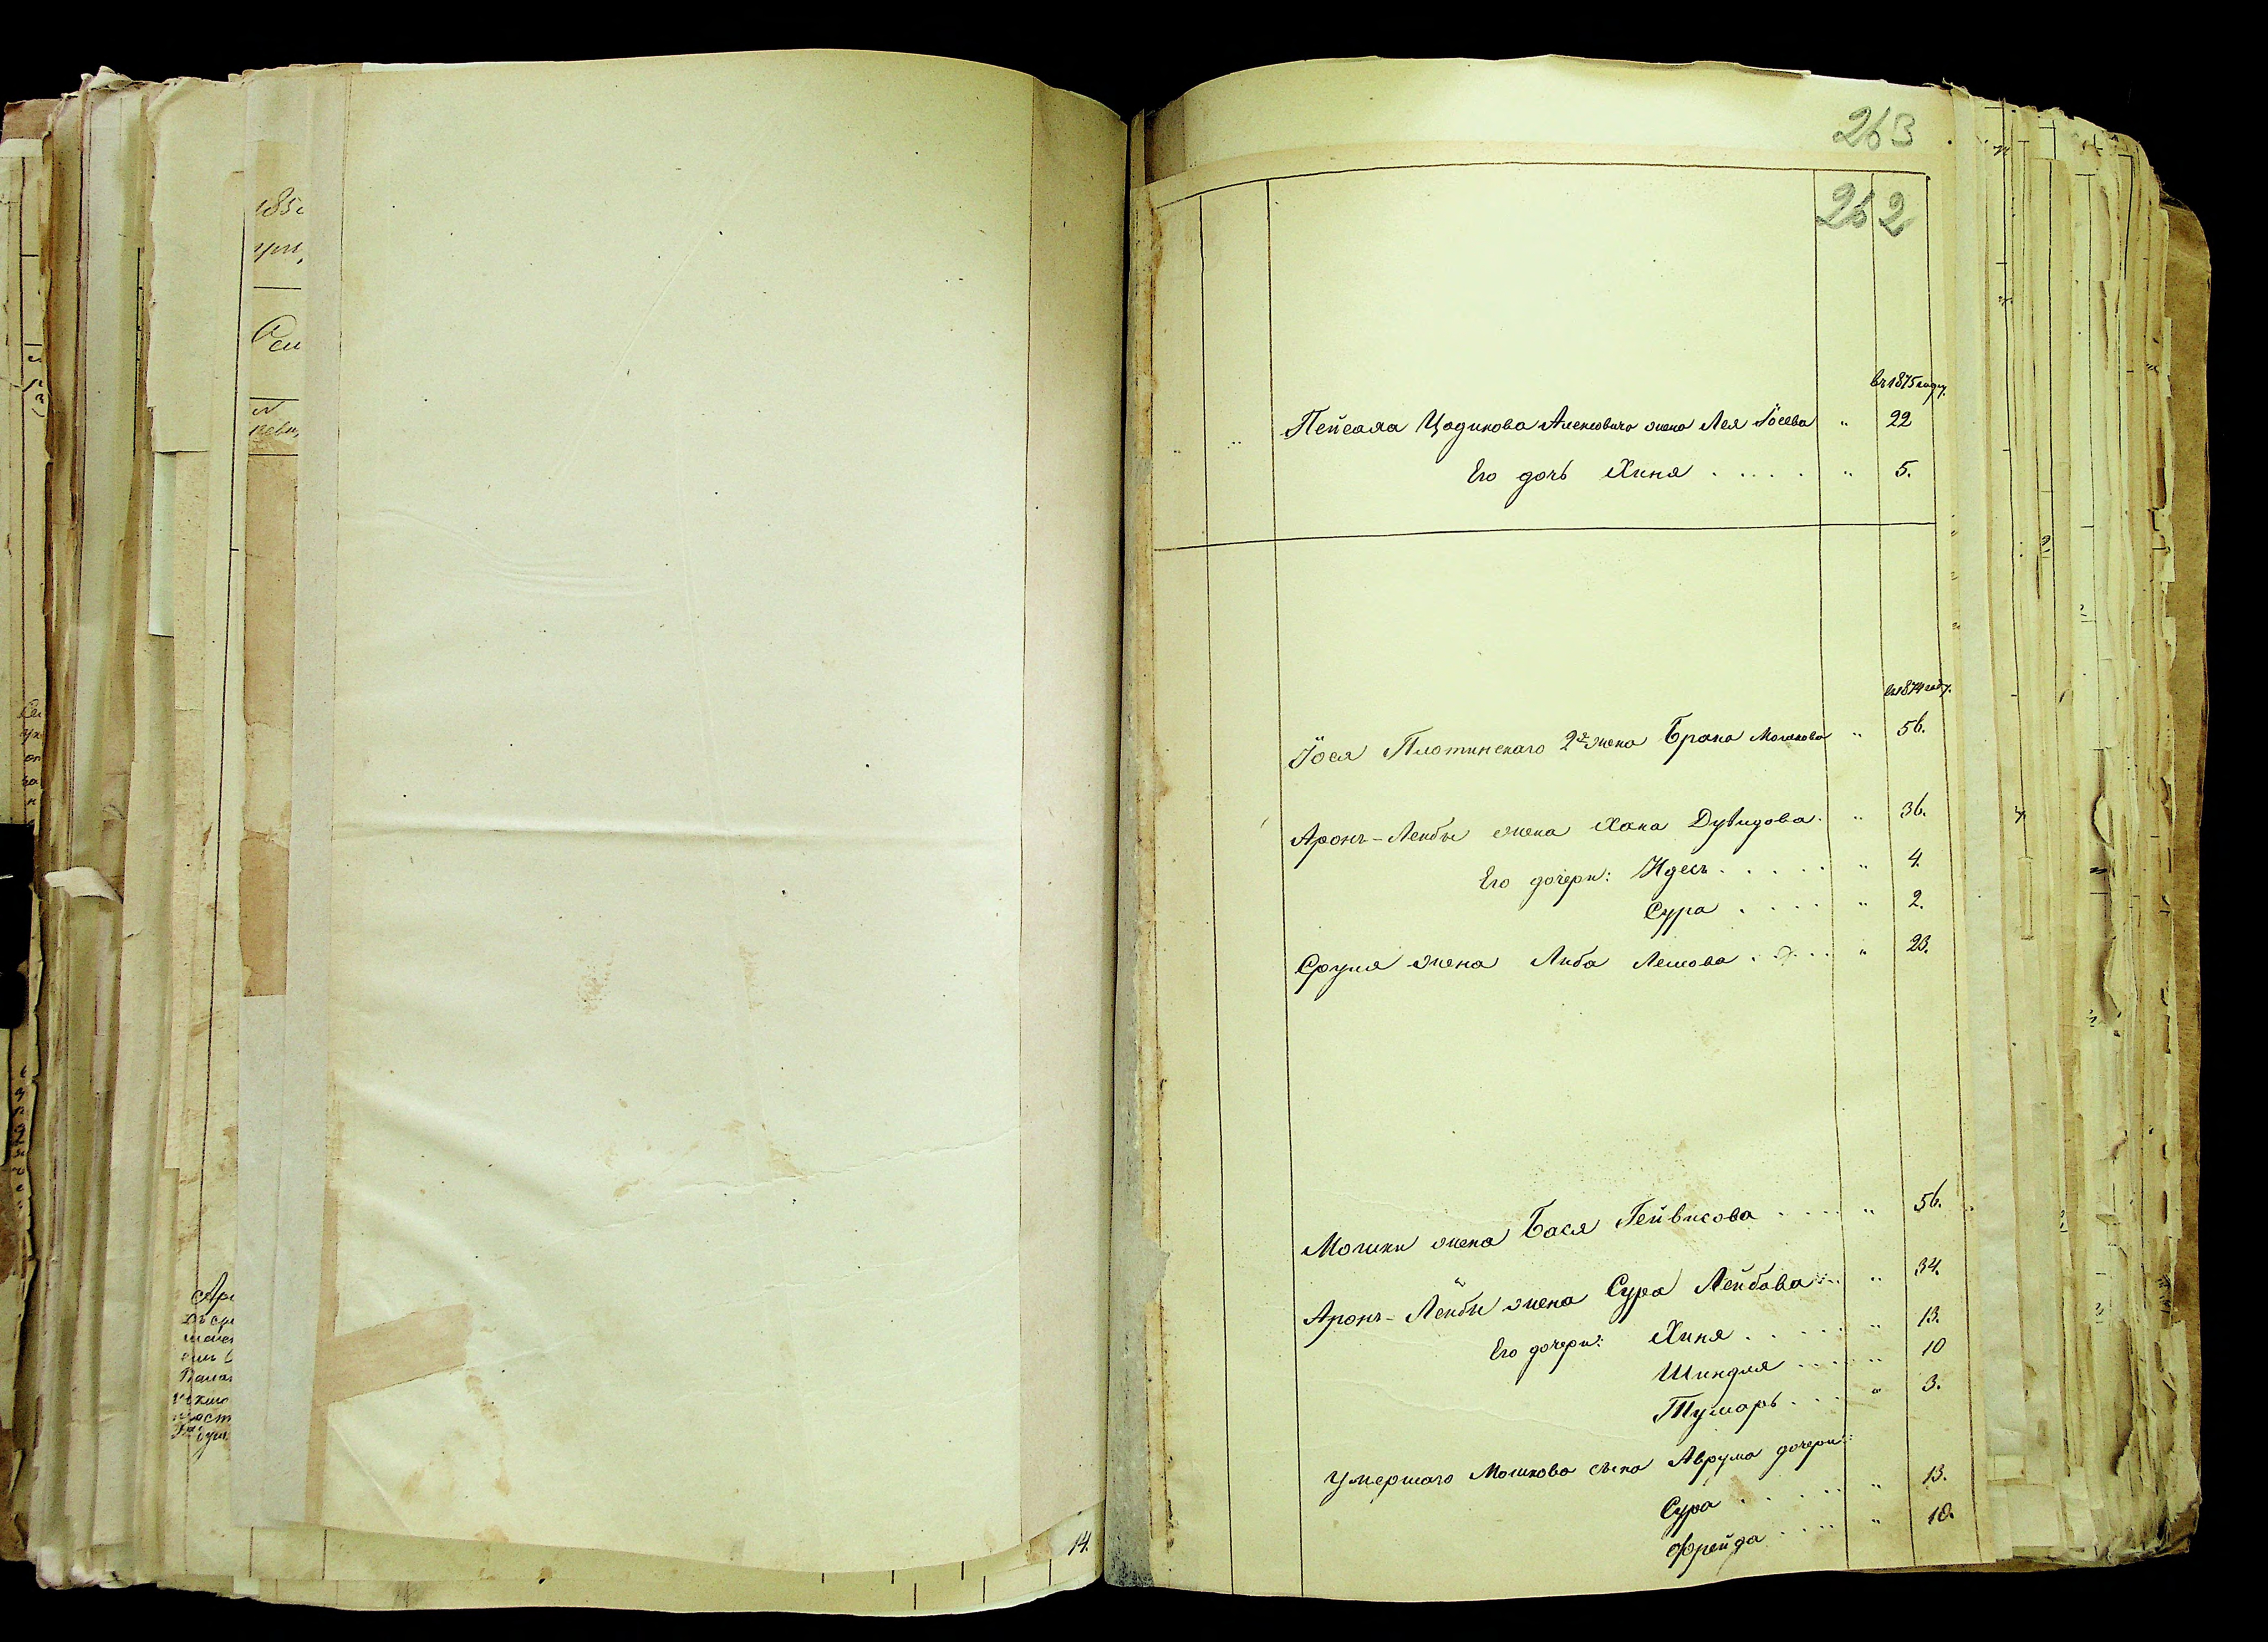 263
262
въ 1875 году.
Пейсаха Цодикова жена Лея Іосева " 22
Его дочь Хиня . . . . . " 5.
въ 1874 году.
Іося Плотинскаго 2я жена Брана Мошкова " 56.
Аронъ-Лейбы жена Хана Дувидова. " 36.
Его дочери: Идесъ . . . . . " 4.
Сура . . . . " 2.
Сруля жена Либа Лейбова . . . . " 23.
Мошки жена Бася Гейвисова . . . . " 56.
Аронъ-Лейбы жена Сура Лейбова . . . " 34.
Его дочери: Хиня . . . . . " 13.
Шиндля . . . . " 10
Тумаръ . . . " 3.
Умершаго Мошкова сына Аврума дочери:
Сура . . . . . " 13.
Фрейда . . . . " 10.
14.